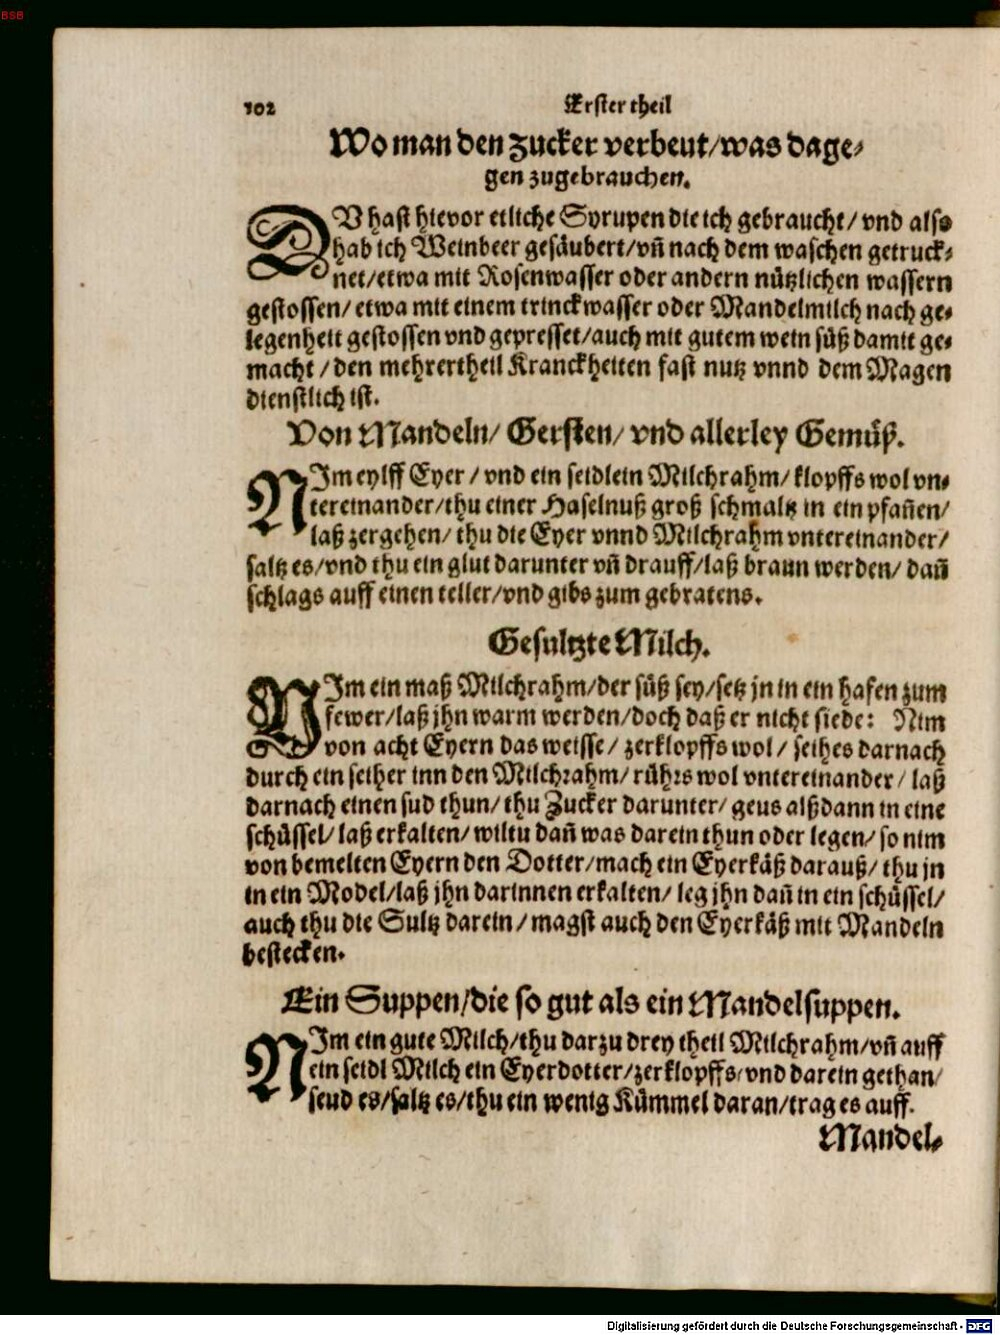 BSB
102 Erster theil
Wo man den zucker verbeut/was dage-
gen zugebrauchen.
DV hast hievor etliche Syrupen die ich gebraucht/ vnd also
hab ich Weinbeer gesäubert/vñ nach dem waschen getruck-
net/etwa mit Rosenwasser oder andern nützlichen wassern
gestossen/ etwa mit einem trinckwasser oder Mandelmilch nach ge-
legenheit gestossen vnd gepresset/auch mit gutem wein süß damit ge-
macht/den mehrertheil Kranckheiten fast nutz vnnd dem Magen
dienstlich ist.
Von Mandeln/ Gersten/ vnd allerley Gemüß.
NIm eylff Eyer/vnd ein seidlein Milchrahm/klopffs wol vn-
tereinander/thu einer Haselnuß groß schmaltz in ein pfañen/
laß zergehen/ thu die Eyer vnnd Milchrahm vntereinander/
saltz es/vnd thu ein glut darunter vñ drauff/laß braun werden/ dañ
schlags auff einen teller/vnd gibs zum gebratens.
Gesultzte Milch.
NIm ein maß Milchrahm/der süß sey/setz jn in ein hafen zum
fewer/laß jhn warm werden/doch daß er nicht siede: Nim
von acht Eyern das weisse/ zerklopffs wol/ seihes darnach
durch ein seiher inn den Milchrahm/rührs wol vntereinander/ laß
darnach einen sud thun/thu Zucker darunter/ geus alßdann in eine
schüssel/laß erkalten/wiltu dañ was darein thun oder legen/so nim
von bemelten Eyern den Dotter/mach ein Eyerkäß darauß/ thu jn
in ein Model/laß jhn darinnen erkalten/ leg jhn dañ in ein schüssel/
auch thu die Sultz darein/magst auch den Eyerkäß mit Mandeln
bestecken.
Ein Suppen/die so gut als ein Mandelsuppen.
NIm ein gute Milch/thu darzu drey theil Milchrahm/vñ auff
ein seidl Milch ein Eyerdotter/zerklopffs/vnd darein gethan/
seud es/saltz es/thu ein wenig Kümmel daran/trag es auff.
Mandel-
Digitalisierung gefördert durch die Deutsche Forschungsgemeinschaft - DFG